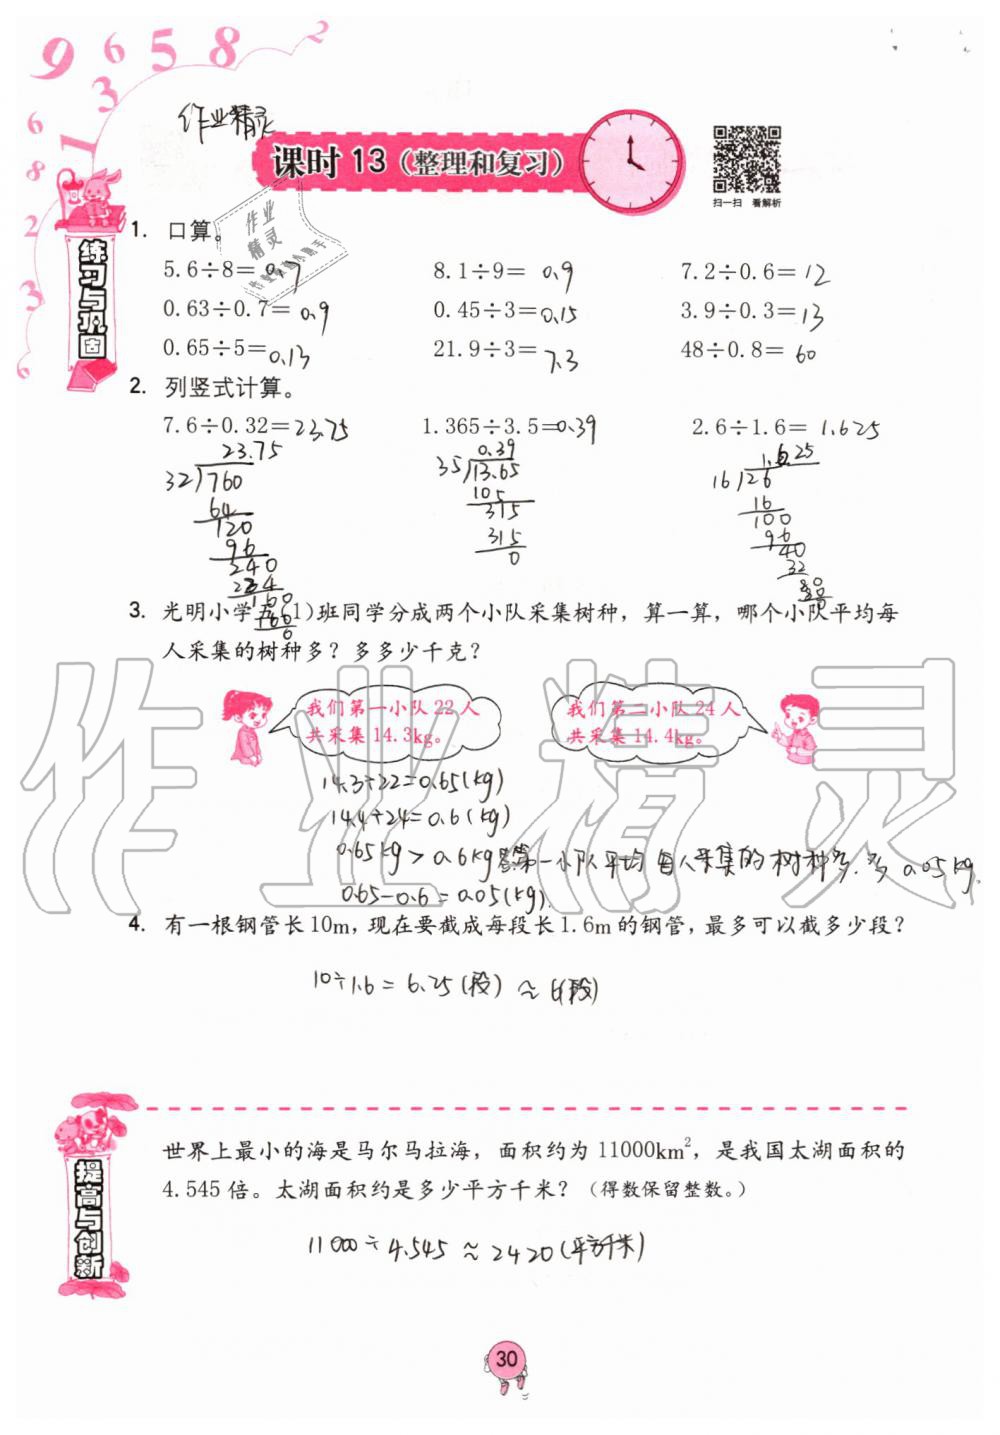 9 6 5 8 2
3
6 1
8
2
3
6
作业精灵
课时 13（整理和复习）
扫一扫 看解析
练习与巩固
作业
精灵
1. 口算。
5.6÷8= 0.7 8.1÷9= 0.9 7.2÷0.6= 12
0.63÷0.7= 0.9 0.45÷3=0.15 3.9÷0.3= 13
0.65÷5= 0.13 21.9÷3= 7.3 48÷0.8= 60
2. 列竖式计算。
7.6÷0.32=23.75 1.365÷3.5=0.39 2.6÷1.6= 1.625
23.75 0.39 1.625
32)760 35)13.65 16)26
64 105 16
120 315 100
96 315 96
240 0 40
224 32
160 80
160 80
0 0
3. 光明小学五(1)班同学分成两个小队采集树种，算一算，哪个小队平均每
人采集的树种多？多多少千克？
我们第一小队 22 人 我们第二小队 24 人
共采集 14.3kg。 共采集 14.4kg。
14.3÷22=0.65(kg)
14.4÷24=0.6(kg)
0.65kg>0.6kg 答:第一小队平均每人采集的树种多.多0.05kg.
0.65-0.6=0.05(kg).
4. 有一根钢管长 10m，现在要截成每段长 1.6m 的钢管，最多可以截多少段？
10÷1.6=6.25(段)≈6(段)
提高与创新
世界上最小的海是马尔马拉海，面积约为 11000km²，是我国太湖面积的
4.545 倍。太湖面积约是多少平方千米？（得数保留整数。）
11000÷4.545≈2420(平方千米)
30
作业精灵